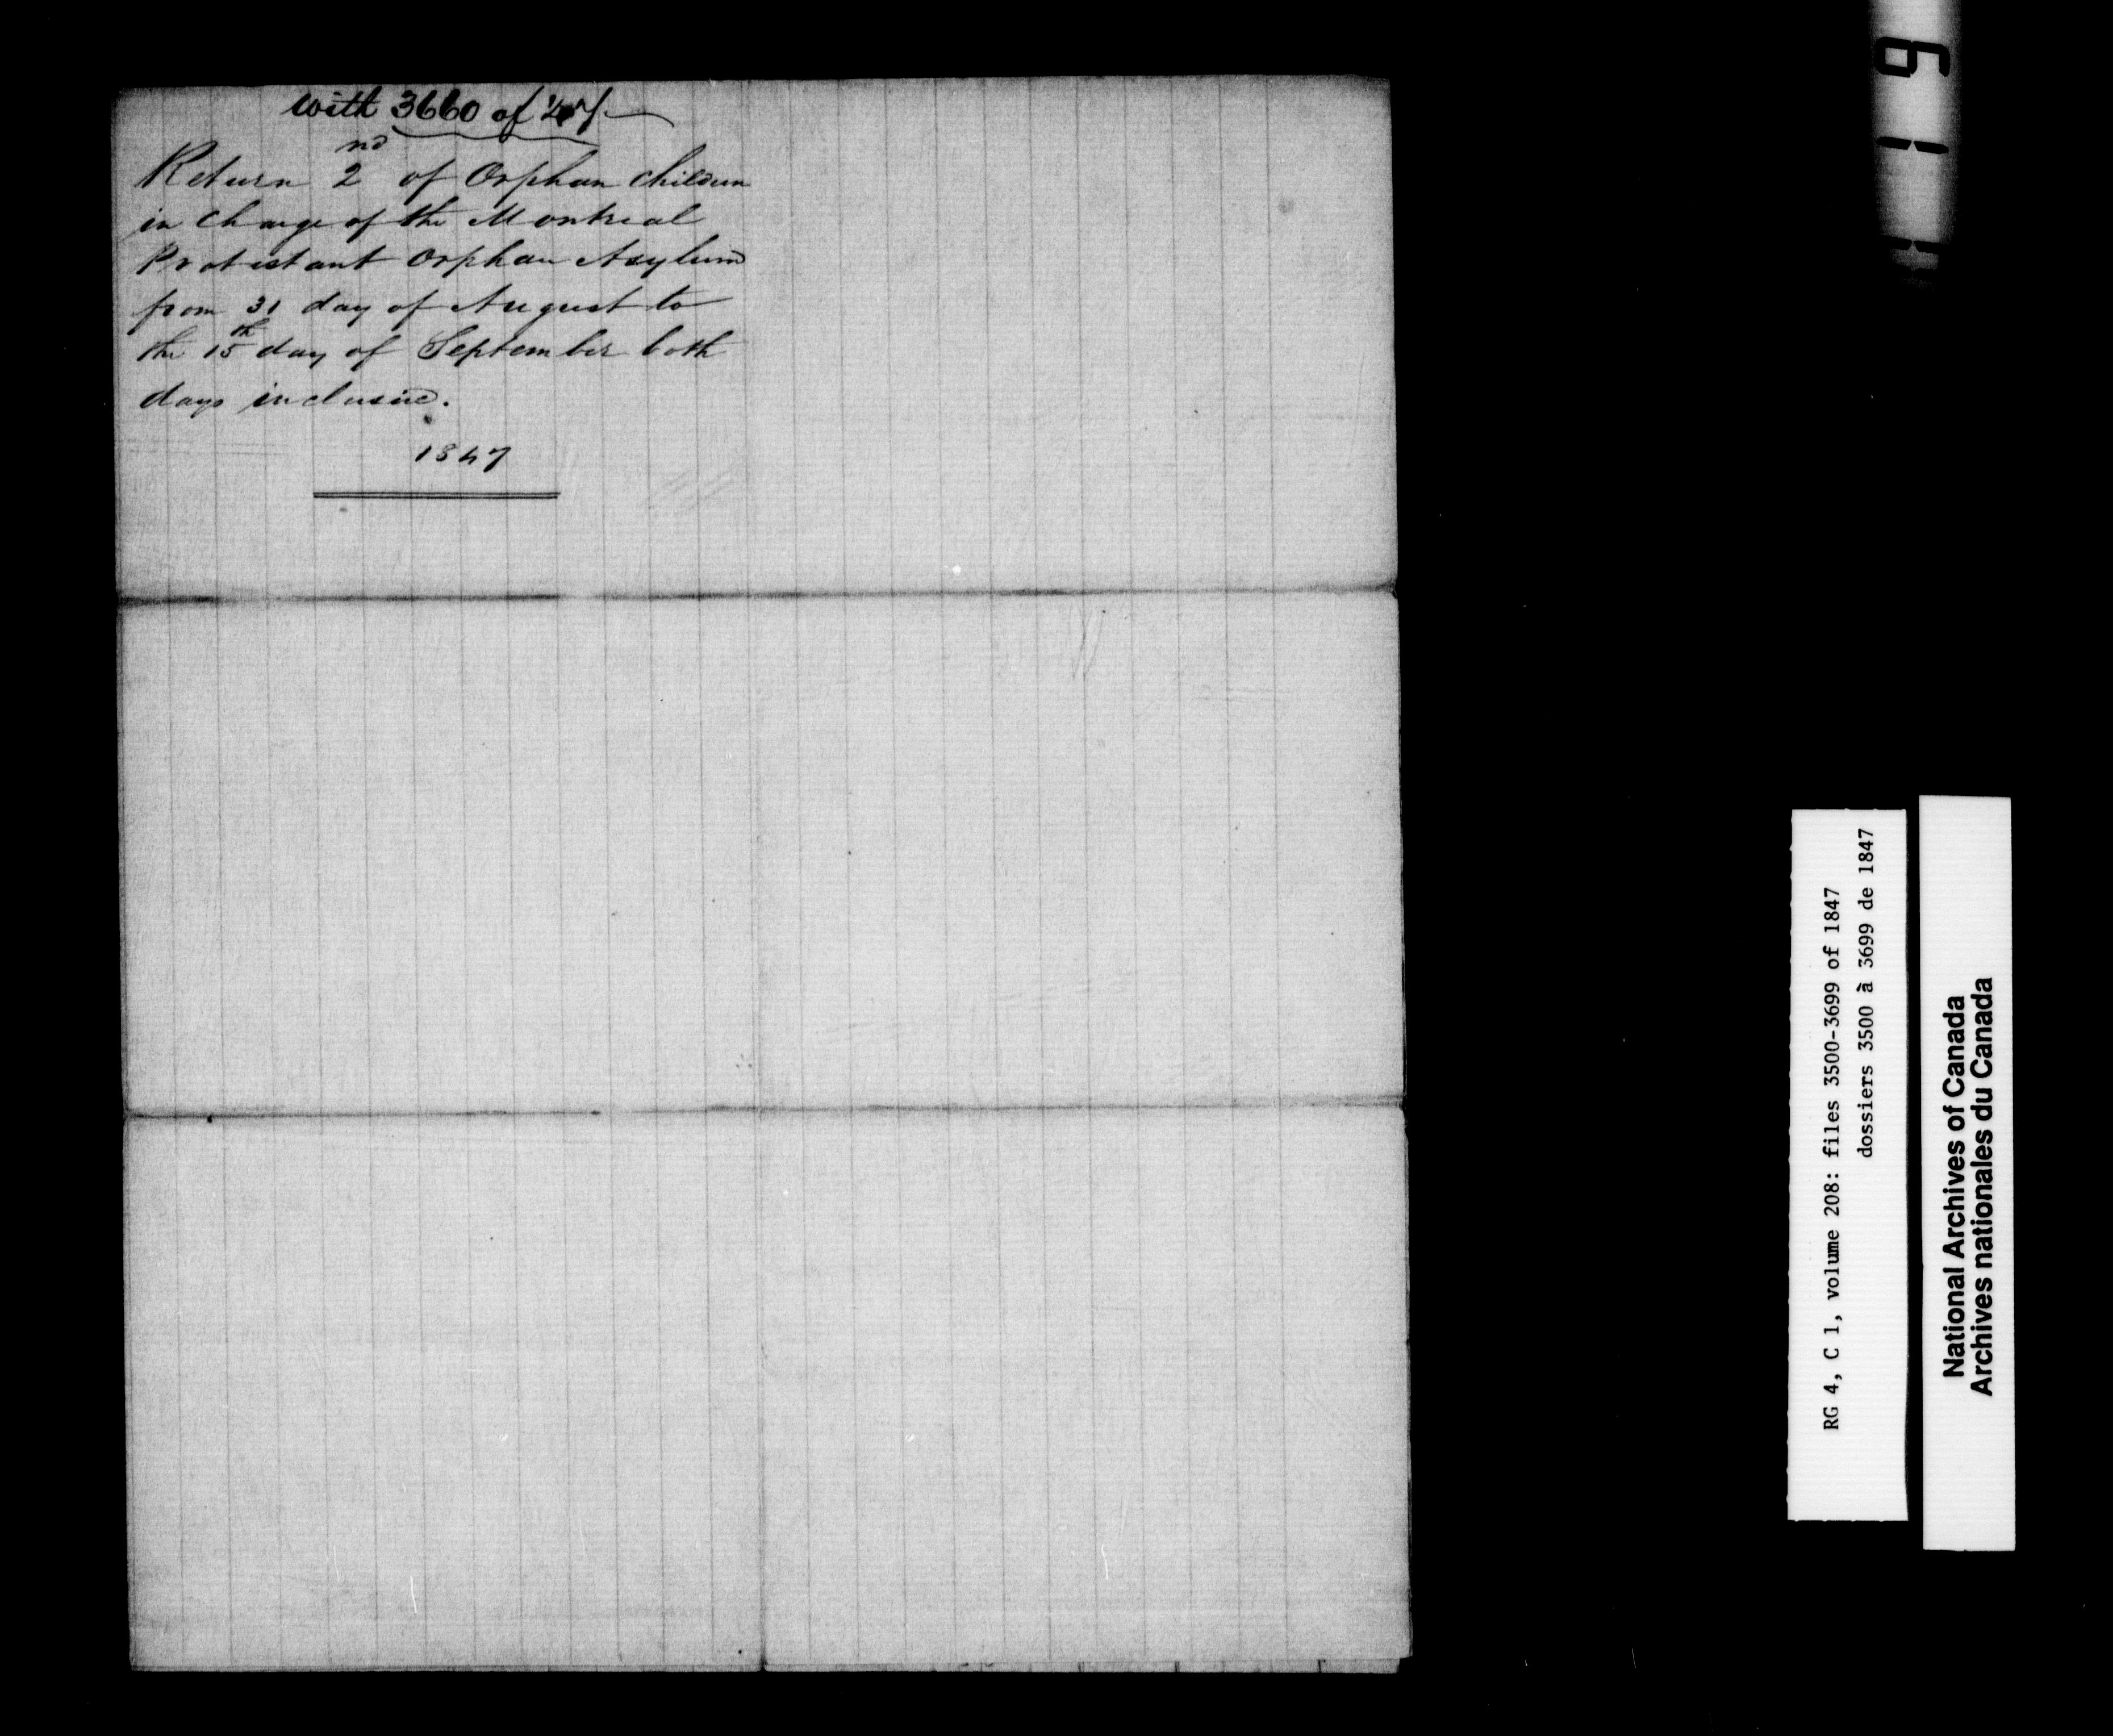 with 3660 of '47
Return 2nd of Orphan children
in charge of the Montreal
Protestant Orphan Asylum
from 31 day of August to
the 15th day of September both
days inclusive.
1847
RG 4, C 1, volume 208: files 3500-3699 of 1847
dossiers 3500 à 3699 de 1847
National Archives of Canada
Archives nationales du Canada